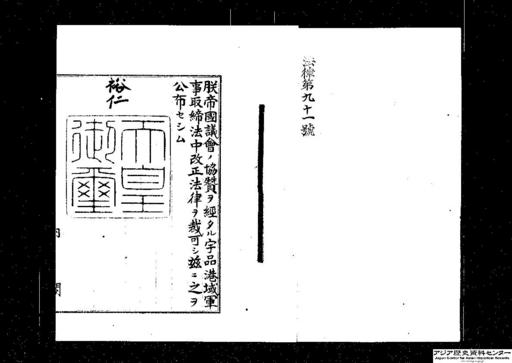 法律第九十一號
朕帝國議會ノ協贊ヲ經タル宇品港域軍
事取締法中改正法律ヲ裁可シ玆ニ之ヲ
公布セシム
裕仁
天皇
御璽
内閣
アジア歴史資料センター
Japan Center for Asian Historical Records